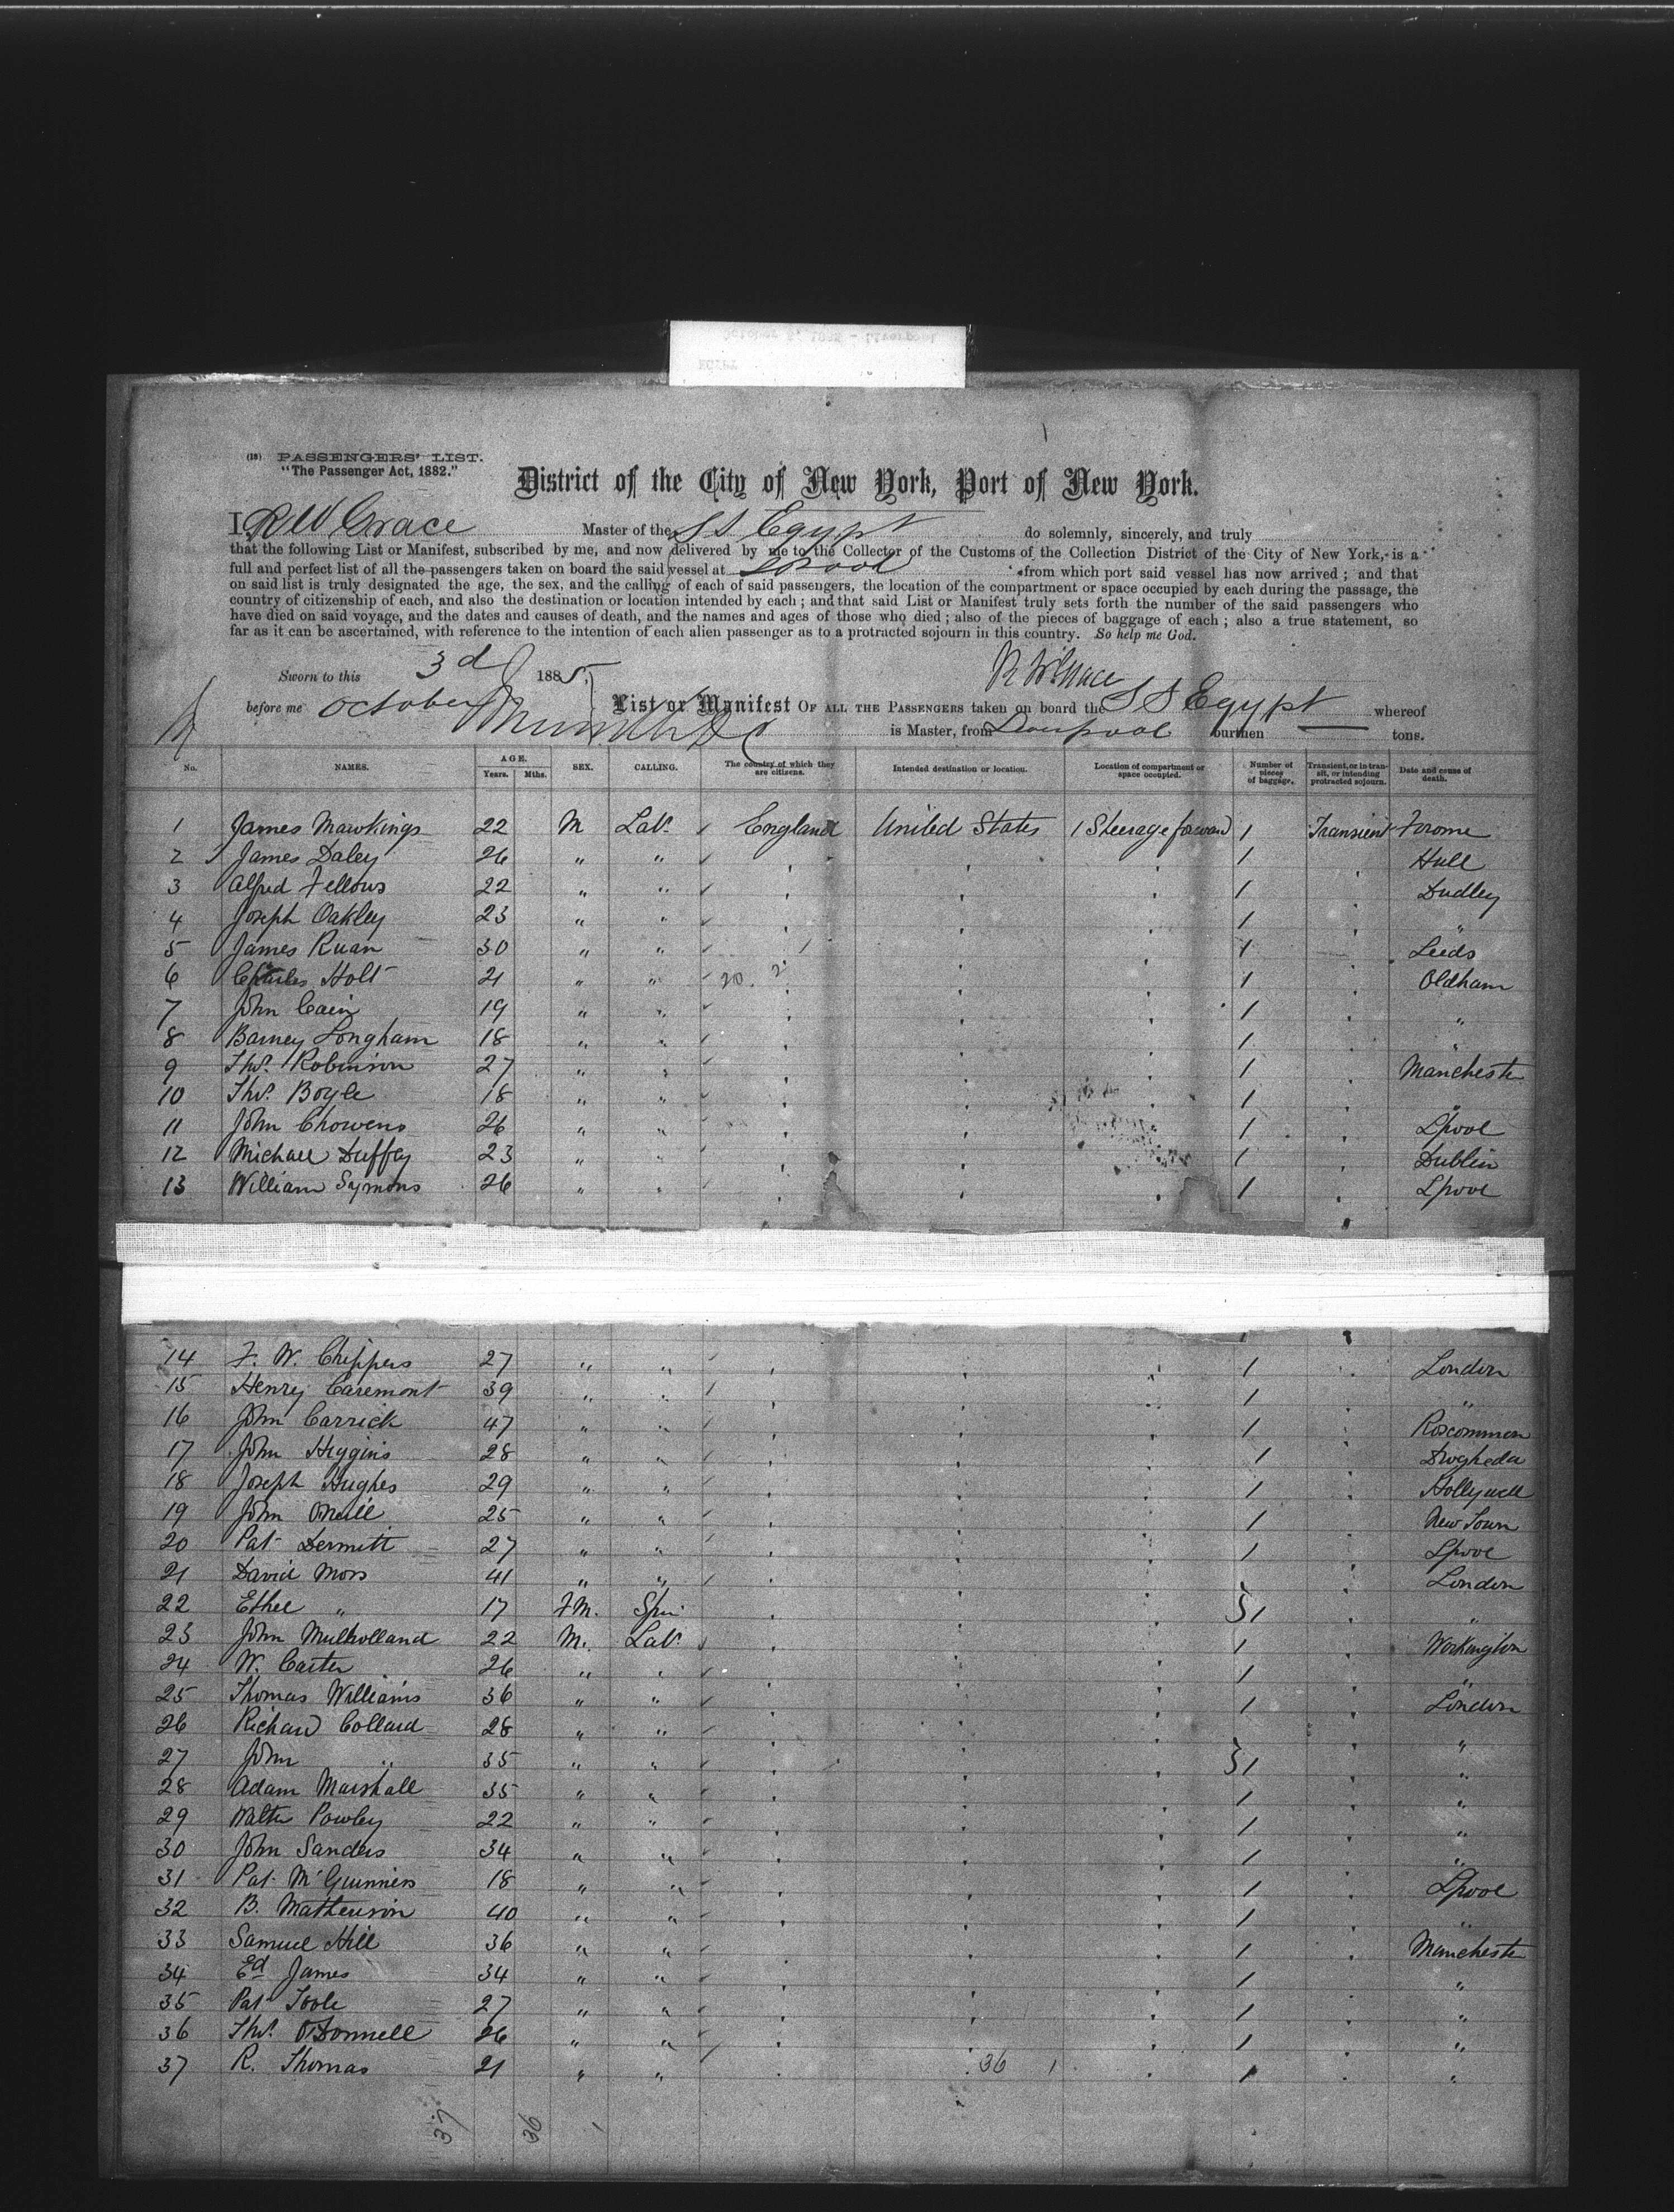 (18) PASSENGERS' LIST.
"The Passenger Act, 1882."
District of the City of New York, Port of New York.
I, R W Grace Master of the S S Egypt do solemnly, sincerely, and truly
that the following List or Manifest, subscribed by me, and now delivered by me to the Collector of the Customs of the Collection District of the City of New York, is a
full and perfect list of all the passengers taken on board the said vessel at Lpool from which port said vessel has now arrived; and that
on said list is truly designated the age, the sex, and the calling of each of said passengers, the location of the compartment or space occupied by each during the passage, the
country of citizenship of each, and also the destination or location intended by each; and that said List or Manifest truly sets forth the number of the said passengers who
have died on said voyage, and the dates and causes of death, and the names and ages of those who died; also of the pieces of baggage of each; also a true statement, so
far as it can be ascertained, with reference to the intention of each alien passenger as to a protracted sojourn in this country. So help me God.
Sworn to this 3d 1885. R W Grace
before me October List or Manifest OF ALL THE PASSENGERS taken on board the S S Egypt whereof
is Master, from Liverpool burthen — tons.
No. NAMES. AGE. Years. Mths. SEX. CALLING. The country of which they are citizens. Intended destination or location. Location of compartment or space occupied. Number of pieces of baggage. Transient, or in transit, or intending protracted sojourn. Date and cause of death.
1 James Mawkings 22 M Labr England United States 1 Steerage forward 1 Transient Frome
2 James Daley 26 " " 1 Hull
3 Alfred Fellows 22 " " 1 Dudley
4 Joseph Oakley 23 " " 1 "
5 James Ruan 30 " " 1 Leeds
6 Charles Holt 21 " " 20 2 1 Oldham
7 John Cain 19 " " 1 "
8 Barney Longham 18 " " 1 "
9 Thos. Robinson 27 " " 1 Mancheste
10 Thos. Boyle 18 " " 1 "
11 John Chowens 26 " " 1 Lpool
12 Michael Duffey 23 " " 1 Dublin
13 William Symons 26 " " 1 Lpool
14 F. W. Chippers 27 " " 1 London
15 Henry Caremont 39 " " 1 "
16 John Carrick 47 " " 1 Roscommon
17 John Higgins 28 " " 1 Drogheda
18 Joseph Hughes 29 " " 1 Hollywell
19 John ONeill 25 " " 1 New Town
20 Pat Dermitt 27 " " 1 Lpool
21 David Moss 41 " " London
22 Ethel " 17 FM. Spin 1 "
23 John Mulholland 22 M. Labr 1 Workington
24 W. Carter 26 " " 1 "
25 Thomas Williams 36 " " 1 London
26 Richard Collard 28 " " "
27 John " 35 " " 1 "
28 Adam Marshall 35 " " 1 "
29 Walter Powley 22 " " 1 "
30 John Sanders 34 " " 1 "
31 Pat McGuinness 18 " " 1 Lpool
32 B. Mathewson 40 " " 1 "
33 Samuel Hill 36 " " 1 Mancheste
34 Ed James 34 " " 1 "
35 Pat Toole 27 " " 1 "
36 Thos. O'Donnell 26 " " 1 "
37 R. Thomas 21 " " 36 1 1 "
37 36 1